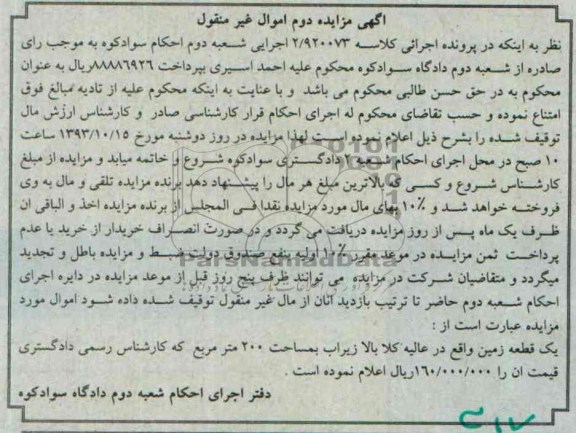 آگهی مزایده دوم اموال غیر منقول
نظر به اینکه در پرونده اجرائی کلاسه ۲/۹۲۰۰۷۳ اجرایی شعبه دوم احکام سوادکوه به موجب رای
صادره از شعبه دوم دادگاه سوادکوه محکوم علیه احمد اسیری بپرداخت ۸۸۸۸۶۹۲۶ریال به عنوان
محکوم به در حق حسن طالبی محکوم می باشد و با عنایت به اینکه محکوم علیه از تادیه مبالغ فوق
امتناع نموده و حسب تقاضای محکوم له اجرای احکام قرار کارشناسی صادر و کارشناس ارزش مال
توقیف شده را بشرح ذیل اعلام نموده است لهذا مزایده در روز دوشنبه مورخ ۱۳۹۳/۱۰/۱۵ ساعت
۱۰ صبح در محل اجرای احکام شعبه ۲ دادگستری سوادکوه شروع و خاتمه میابد و مزایده از مبلغ
کارشناس شروع و کسی که بالاترین مبلغ هر مال را پیشنهاد دهد برنده مزایده تلقی و مال به وی
فروخته خواهد شد و ۱۰٪ بهای مال مورد مزایده نقدا فی المجلس از برنده مزایده اخذ و الباقی ان
ظرف یک ماه پس از روز مزایده دریافت می گردد و در صورت انصراف خریدار از خرید یا عدم
پرداخت ثمن مزایده در موعد مقرر ۱۰٪ اولیه بنفع صندوق دولت ضبط و مزایده باطل و تجدید
میگردد و متقاضیان شرکت در مزایده می توانند ظرف پنج روز قبل از موعد مزایده در دایره اجرای
احکام شعبه دوم حاضر تا ترتیب بازدید آنان از مال غیر منقول توقیف شده داده شود اموال مورد
مزایده عبارت است از :
یک قطعه زمین واقع در عالیه کلا بالا زیراب بمساحت ۲۰۰ متر مربع که کارشناس رسمی دادگستری
قیمت ان را ۱۶۰/۰۰۰/۰۰۰ریال اعلام نموده است .
دفتر اجرای احکام شعبه دوم دادگاه سوادکوه
ParsNamadData